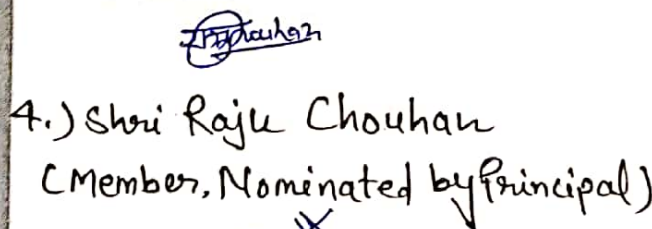 4.) Shri Raju Chouhan
(Member, Nominated by Principal)